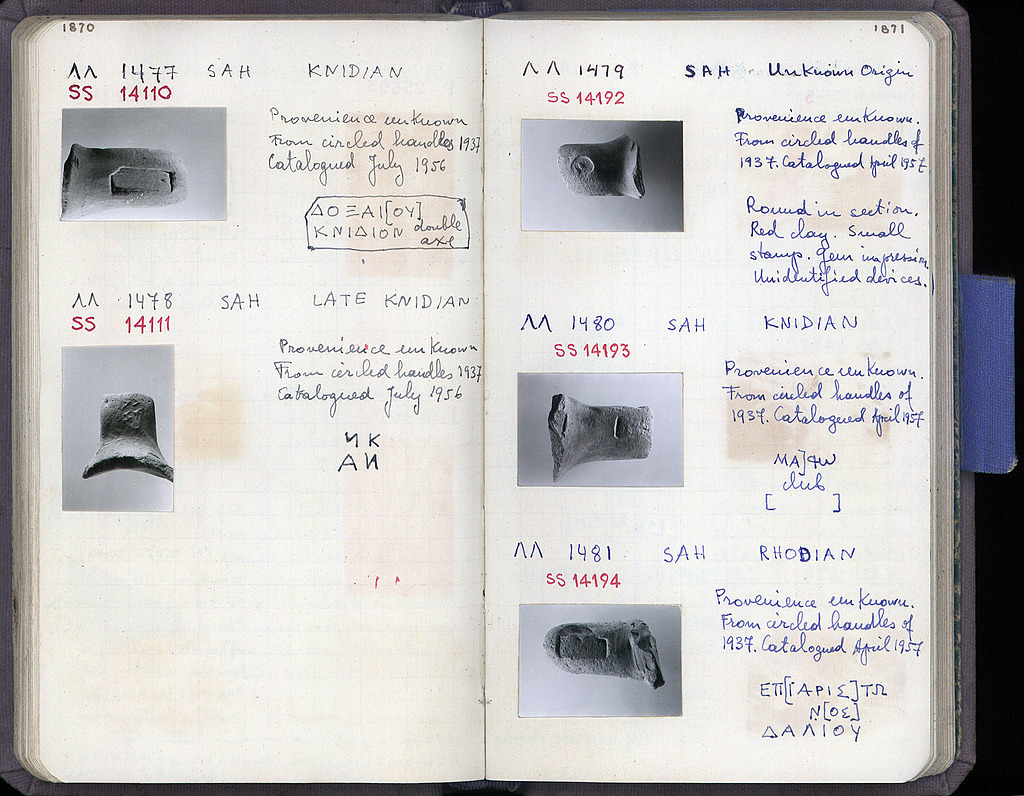 1870
ΛΛ 1477 SAH KNIDIAN
SS 14110
Provenience unknown
From circled handles 1937
Catalogued July 1956
ΔΟΞΑΙ[ΟΥ]
ΚΝΙΔΙΟΝ double
axe
ΛΛ 1478 SAH LATE KNIDIAN
SS 14111
Provenience unknown
From circled handles 1937
Catalogued July 1956
ИΚ
ΑИ
1871
ΛΛ 1479 SAH Unknown Origin
SS 14192
Provenience unknown.
From circled handles of
1937. Catalogued April 1957.
Round in section.
Red clay. Small
stamp. Gem impression.
Unidentified devices.
ΛΛ 1480 SAH KNIDIAN
SS 14193
Provenience unknown.
From circled handles of
1937. Catalogued April 1957
ΜΑ]ΦΩ
club
[ ]
ΛΛ 1481 SAH RHODIAN
SS 14194
Provenience unknown.
From circled handles of
1937. Catalogued April 1957
ΕΠ[Ι ΑΡΙΣ]ΤΩ
Ν[ΟΣ]
ΔΑΛΙΟΥ